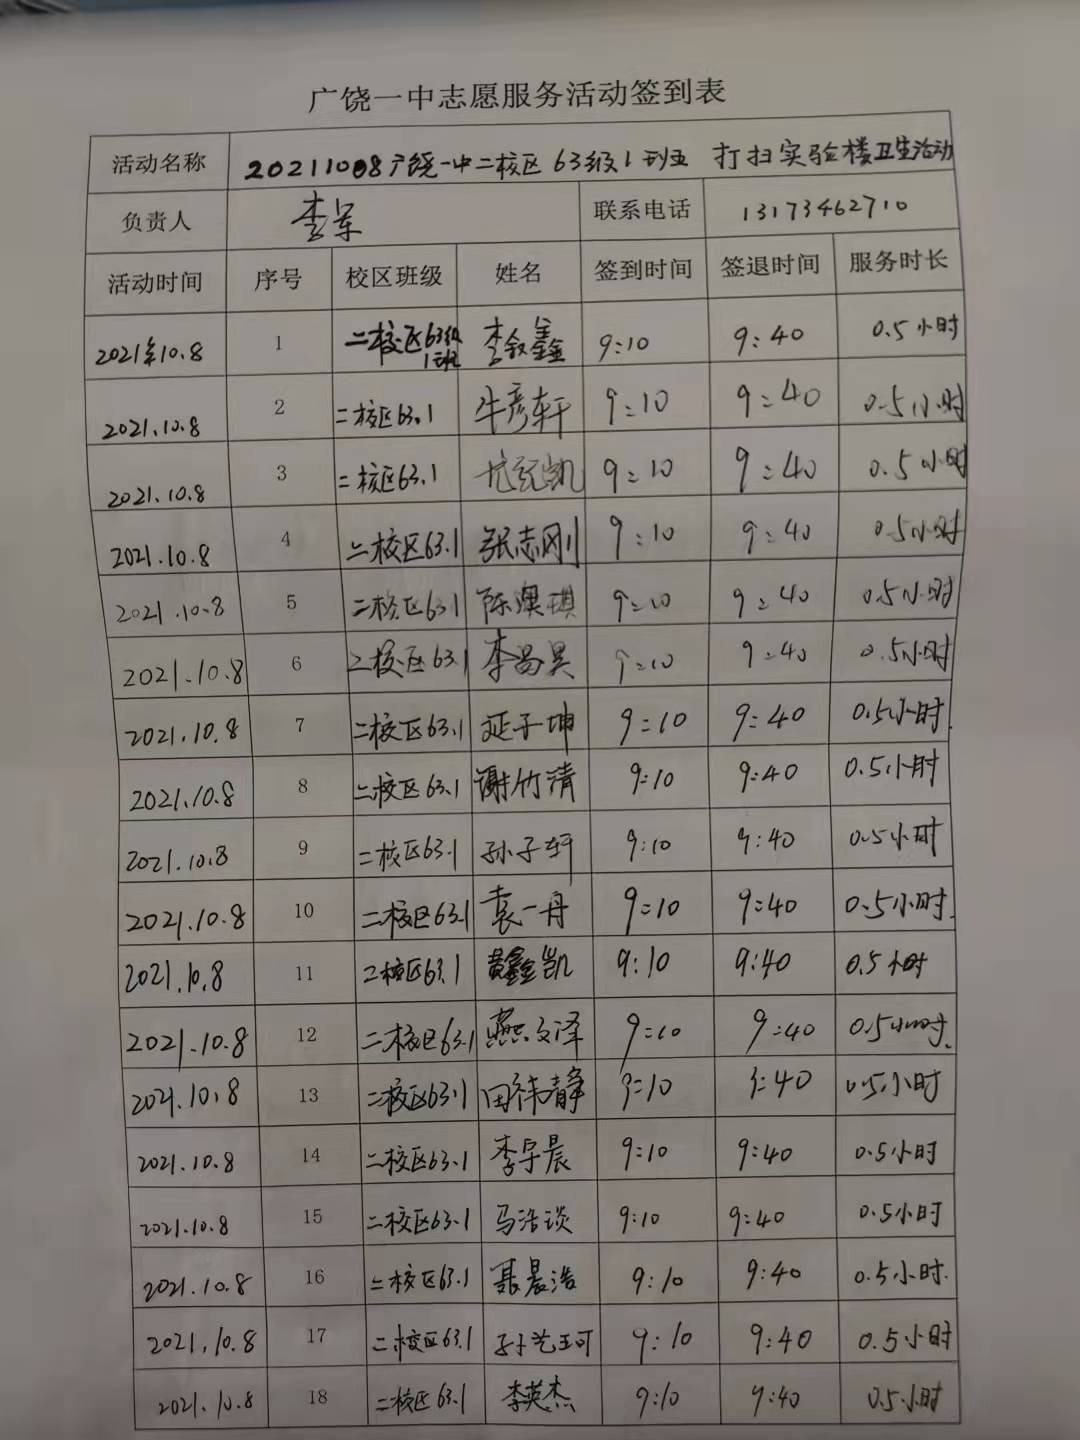 广饶一中志愿服务活动签到表
活动名称 20211008广饶一中二校区63级1班 打扫实验楼卫生活动
负责人 李军 联系电话 13173462710
活动时间 序号 校区班级 姓名 签到时间 签退时间 服务时长
2021年10.8 1 二校区63级1班 李叙鑫 9:10 9:40 0.5小时
2021.10.8 2 二校区63.1 牛彦轩 9:10 9:40 0.5小时
2021.10.8 3 二校区63.1 凯 9:10 9:40 0.5小时
2021.10.8 4 二校区63.1 张志刚 9:10 9:40 0.5小时
2021.10.8 5 二校区63.1 陈澳琪 9:10 9:40 0.5小时
2021.10.8 6 二校区63.1 李昌昊 9:10 9:40 0.5小时
2021.10.8 7 二校区63.1 延子坤 9:10 9:40 0.5小时.
2021.10.8 8 二校区63.1 谢竹清 9:10 9:40 0.5小时
2021.10.8 9 二校区63.1 孙子轩 9:10 9:40 0.5小时
2021.10.8 10 二校区63.1 袁一丹 9:10 9:40 0.5小时.
2021.10.8 11 二校区63.1 黄鑫凯 9:10 9:40 0.5小时
2021.10.8 12 二校区63.1 燕文泽 9:10 9:40 0.5小时.
2021.10.8 13 二校区63.1 田祎静 9:10 9:40 0.5小时
2021.10.8 14 二校区63.1 李宇晨 9:10 9:40 0.5小时
2021.10.8 15 二校区63.1 马浩谈 9:10 9:40 0.5小时
2021.10.8 16 二校区63.1 聂晨浩 9:10 9:40 0.5小时.
2021.10.8 17 二校区63.1 孙艺珂 9:10 9:40 0.5小时
2021.10.8 18 二校区63.1 李英杰 9:10 9:40 0.5小时